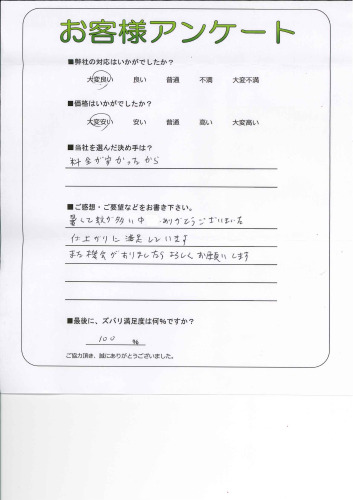 お客様アンケート
■弊社の対応はいかがでしたか？
大変良い 良い 普通 不満 大変不満
■価格はいかがでしたか？
大変安い 安い 普通 高い 大変高い
■当社を選んだ決め手は？
料金が安かったから
■ご感想・ご要望などをお書き下さい。
暑くて蚊が多い中 ありがとうございました
仕上がりに満足しています
また機会がありましたらよろしくお願いします
■最後に、ズバリ満足度は何%ですか？
100 %
ご協力頂き、誠にありがとうございました。